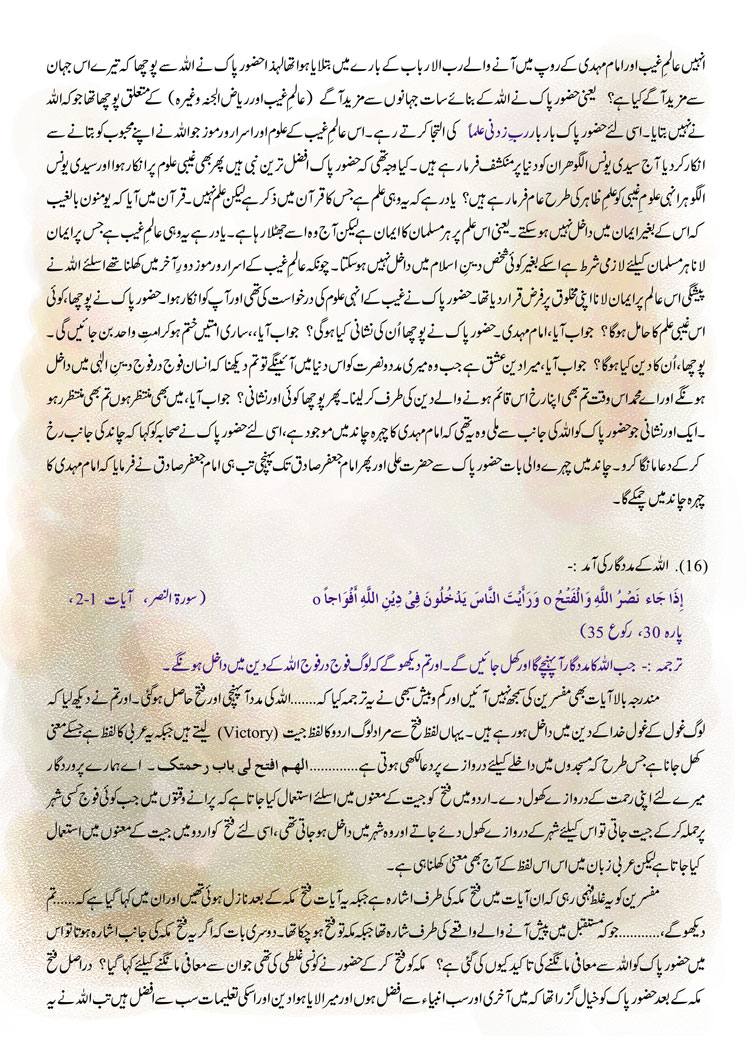 انہیں عالمِ غیب اور امام مہدی کے روپ میں آنے والے رب الارباب کے بارے میں بتلایا ہوا تھا لہذا حضور پاک نے اللہ سے پوچھا کہ تیرے اس جہان
سے مزید آگے کیا ہے؟ یعنی حضور پاک نے اللہ کے بنائے سات جہانوں سے مزید آگے (عالمِ غیب اور ریاض الجنہ وغیرہ) کے متعلق پوچھا تھا جو کہ اللہ
نے نہیں بتایا۔ اسی لئے حضور پاک بار بار ربِ زدنی علماً کی التجا کرتے رہے۔ اس عالمِ غیب کے علوم اور اسرار و رموز جو اللہ نے اپنے محبوب کو بتانے سے
انکار کر دیا آج سیدی یونس الگوھر ان کو دنیا پر منکشف فرما رہے ہیں۔ کیا وجہ تھی کہ حضور پاک افضل ترین نبی ہیں پھر بھی غیبی علوم پر انکار ہوا اور سیدی یونس
الگوہر انہی علومِ غیبی کو علمِ ظاہر کی طرح عام فرما رہے ہیں؟ یاد رہے کہ یہ وہی علم ہے جس کا قرآن میں ذکر ہے لیکن علم نہیں۔ قرآن میں آیا کہ یومنون بالغیب
کہ اس کے بغیر ایمان میں داخل نہیں ہو سکتے۔ یعنی اس علم پر ہر مسلمان کا ایمان ہے لیکن آج وہ اسے جھٹلا رہا ہے۔ یاد رہے یہ وہی عالمِ غیب ہے جس پر ایمان
لانا ہر مسلمان کیلئے لازمی شرط ہے اسکے بغیر کوئی شخص دینِ اسلام میں داخل نہیں ہو سکتا۔ چونکہ عالمِ غیب کے اسرار و رموز دورِ آخر میں کھلنا تھے اسلئے اللہ نے
پیشگی اس عالم پر ایمان لانا اپنی مخلوق پر فرض قرار دیا تھا۔ حضور پاک نے غیب کے انہی علوم کی درخواست کی تھی اور آپ کو انکار ہوا۔ حضور پاک نے پوچھا، کوئی
اس غیبی علم کا حامل ہوگا؟ جواب آیا، امام مہدی۔ حضور پاک نے پوچھا اُن کی نشانی کیا ہوگی؟ جواب آیا،، ساری امتیں ختم ہو کر امتِ واحد بن جائیں گی۔
پوچھا، اُن کا دین کیا ہوگا؟ جواب آیا، میرا دینِ عشق ہے جب وہ میری مدد و نصرت کو اس دنیا میں آئینگے تو تم دیکھنا کہ انسان فوج در فوج دینِ الٰہی میں داخل
ہونگے اور اے محمد اس وقت تم بھی اپنا رخ اس قائم ہونے والے دین کی طرف کر لینا۔ پھر پوچھا کوئی اور نشانی؟ جواب آیا، میں بھی منتظر ہوں تم بھی منتظر رہو
۔ ایک اور نشانی جو حضور پاک کو اللہ کی جانب سے ملی وہ یہ تھی کہ امام مہدی کا چہرہ چاند میں موجود ہے، اسی لئے حضور پاک نے صحابہ کو کہا کہ چاند کی جانب رخ
کر کے دعا مانگا کرو۔ چاند میں چہرے والی بات حضور پاک سے حضرت علی اور پھر امام جعفر صادق تک پہنچی تب ہی امام جعفر صادق نے فرمایا کہ امام مہدی کا
چہرہ چاند میں چمکے گا۔
(16). اللہ کے مددگار کی آمد :-
إِذَا جَاء نَصْرُ اللَّهِ وَالْفَتْحُ o وَرَأَيْتَ النَّاسَ يَدْخُلُونَ فِيْ دِيْنِ اللَّهِ أَفْوَاجاً o (سورۃ النصر، آیات 1-2،
پارہ 30، رکوع 35)
ترجمہ :- جب اللہ کا مددگار آ پہنچے گا اور کھل جائیں گے۔ اور تم دیکھو گے کہ لوگ فوج در فوج اللہ کے دین میں داخل ہونگے۔
مندرجہ بالا آیات بھی مفسرین کی سمجھ نہیں آئیں اور کم و بیش سبھی نے یہ ترجمہ کیا کہ.......اللہ کی مدد آ پہنچی اور فتح حاصل ہوگئی۔ اور تم نے دیکھ لیا کہ
لوگ غول کے غول خدا کے دین میں داخل ہو رہے ہیں۔ یہاں لفظ فتح سے مراد لوگ اردو کا لفظ جیت (Victory) لیتے ہیں جبکہ یہ عربی کا لفظ ہے جسکے معنی
کھل جانا ہے جس طرح کہ مسجدوں میں داخلے کیلئے دروازے پر دعا لکھی ہوتی ہے............اللهم افتح لی باب رحمتک۔ اے ہمارے پروردگار
میرے لئے اپنی رحمت کے دروازے کھول دے۔ اردو میں فتح کو جیت کے معنوں میں اسلئے استعمال کیا جاتا ہے کہ پرانے وقتوں میں جب کوئی فوج کسی شہر
پر حملہ کر کے جیت جاتی تو اس کیلئے شہر کے دروازے کھول دئے جاتے اور وہ شہر میں داخل ہو جاتی تھی، اسی لئے فتح کو اردو میں جیت کے معنوں میں استعمال
کیا جاتا ہے لیکن عربی زبان میں اس اس لفظ کے آج بھی معنیٰ کھلنا ہی ہے۔
مفسرین کو یہ غلط فہمی رہی کہ ان آیات میں فتح مکہ کی طرف اشارہ ہے جبکہ یہ آیات فتح مکہ کے بعد نازل ہوئی تھیں اور ان میں کہا گیا ہے کہ......تم
دیکھو گے،...........جو کہ مستقبل میں پیش آنے والے واقعے کی طرف اشارہ تھا جبکہ مکہ تو فتح ہو چکا تھا۔ دوسری بات کہ اگر یہ فتح مکہ کی جانب اشارہ ہوتا تو اس
میں حضور پاک کو اللہ سے معافی مانگنے کی تاکید کیوں کی گئی ہے؟ مکہ کو فتح کر کے حضور نے کونسی غلطی کی تھی جو ان سے معافی مانگنے کیلئے کہا گیا؟ دراصل فتح
مکہ کے بعد حضور پاک کو خیال گزرا تھا کہ میں آخری اور سب انبیاء سے افضل ہوں اور میرا لایا ہوا دین اور اسکی تعلیمات سب سے افضل ہیں تب اللہ نے یہ